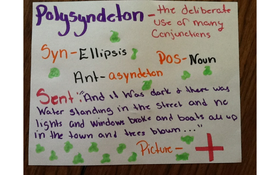 Polysyndeton - the deliberate
use of many
Conjunctions
Syn-Ellipsis Dos-Noun
Ant-asyndeton
Sent: "And it was dark & there was
Water standing in the street and no
lights and windows broke and boats all up
in the town and trees blown..."
Picture -